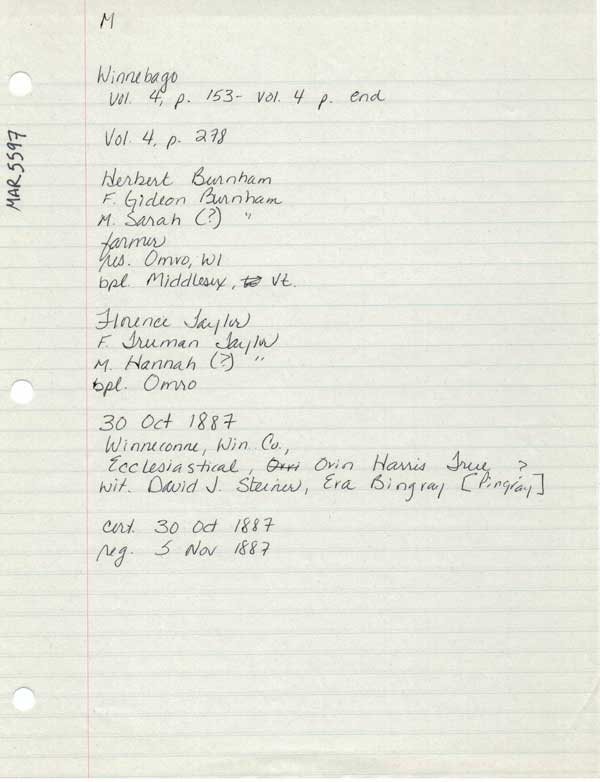 M
MAR5597
Winnebago
Vol. 4, p. 153- Vol. 4 p. end
Vol. 4, p. 278
Herbert Burnham
F. Gideon Burnham
M. Sarah (?) "
farmer
res. Omro, WI
bpl. Middlesex, to Vt.
Florence Taylor
F. Truman Taylor
M. Hannah (?) "
bpl. Omro
30 Oct 1887
Winneconne, Win. Co.,
Ecclesiastical, Orri Orin Harris True ?
wit. David J. Steiner, Era Bingray [Pingray]
cert. 30 Oct 1887
reg. 5 Nov 1887